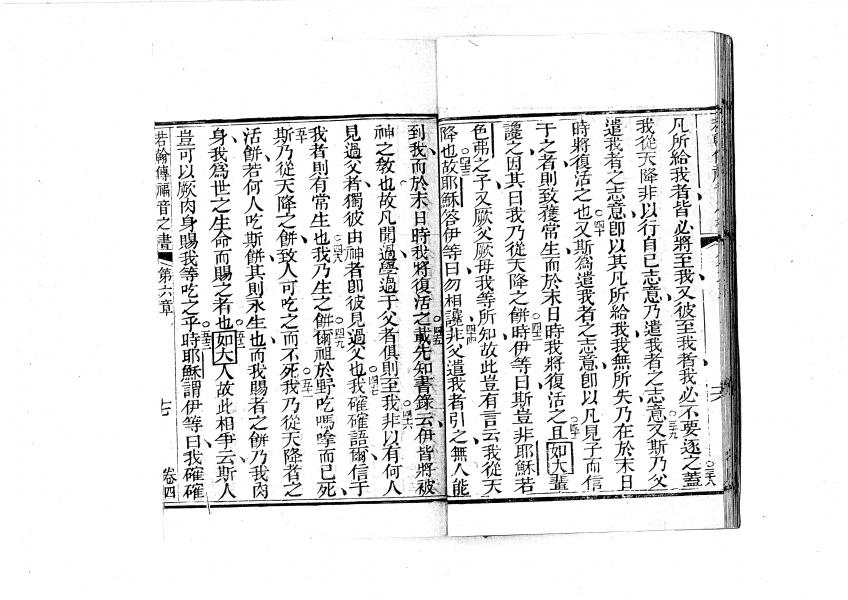 凡所給我者皆必將至我又彼至我者我必不要逐之蓋○三八
我從天降非以行自己志意乃遣我者之志意○三九又斯乃父
遣我者之志意卽以其凡所給我我無所失乃在於末日
時將復活之也○四十又斯為遣我者之志意卽以凡見子而信
于之者則致獲常生而於末日時我將復活之且○四一如大輩
讒之因其曰我乃從天降之餅○四二時伊等曰斯豈非耶穌若
色弗之子又厥父厥母我等所知故此豈有言云我從天
降也○四三故耶穌答伊等曰勿相讒○四四非父遣我者引之無人能
到我而於末日時我將復活之○四五載先知書錄云伊皆將被
神之教也故凡聞過學過于父者俱則至我○四六非以有何人
見過父者獨彼由神者卽彼見過父也○四七我確確語爾信于
我者則有常生也○四八我乃生之餅○四九爾祖於野吃嗎嗱而已死
○五十斯乃從天降之餅致人可吃之而不死○五一我乃從天降者之
活餅若何人吃斯餅其則永生也而我賜者之餅乃我肉
身我為世之生命而賜之者也○五二如大人故此相爭云斯人
豈可以厥肉身賜我等吃之乎○五三時耶穌謂伊等曰我確確
若翰傳福音之書 第六章 七 卷四